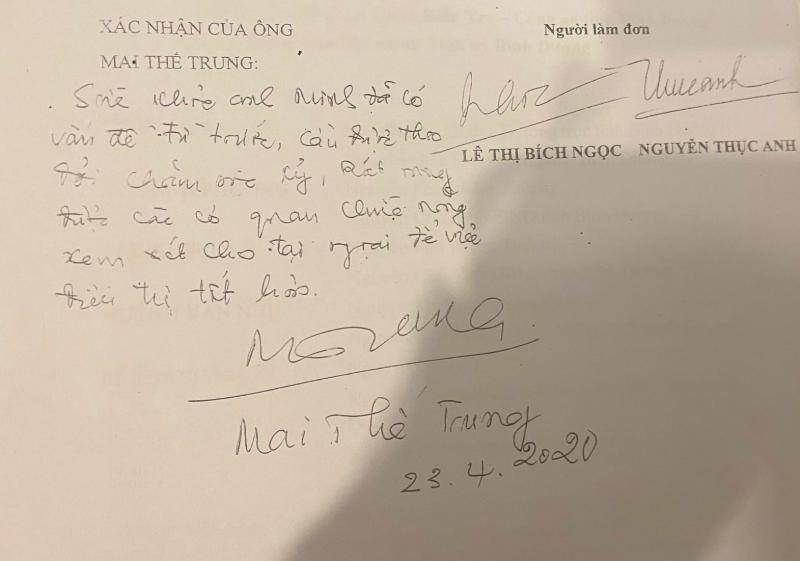 XÁC NHẬN CỦA ÔNG
MAI THẾ TRUNG:
Người làm đơn
. Sức khỏe anh Minh đã có
vấn đề từ trước, cần được theo
dõi chăm sóc kỹ, Rất mong
được các cơ quan chức năng
xem xét cho tại ngoại để việc
điều trị tốt hơn.
LÊ THỊ BÍCH NGỌC NGUYỄN THỤC ANH
Thucanh
Mai Thế Trung
23.4.2020